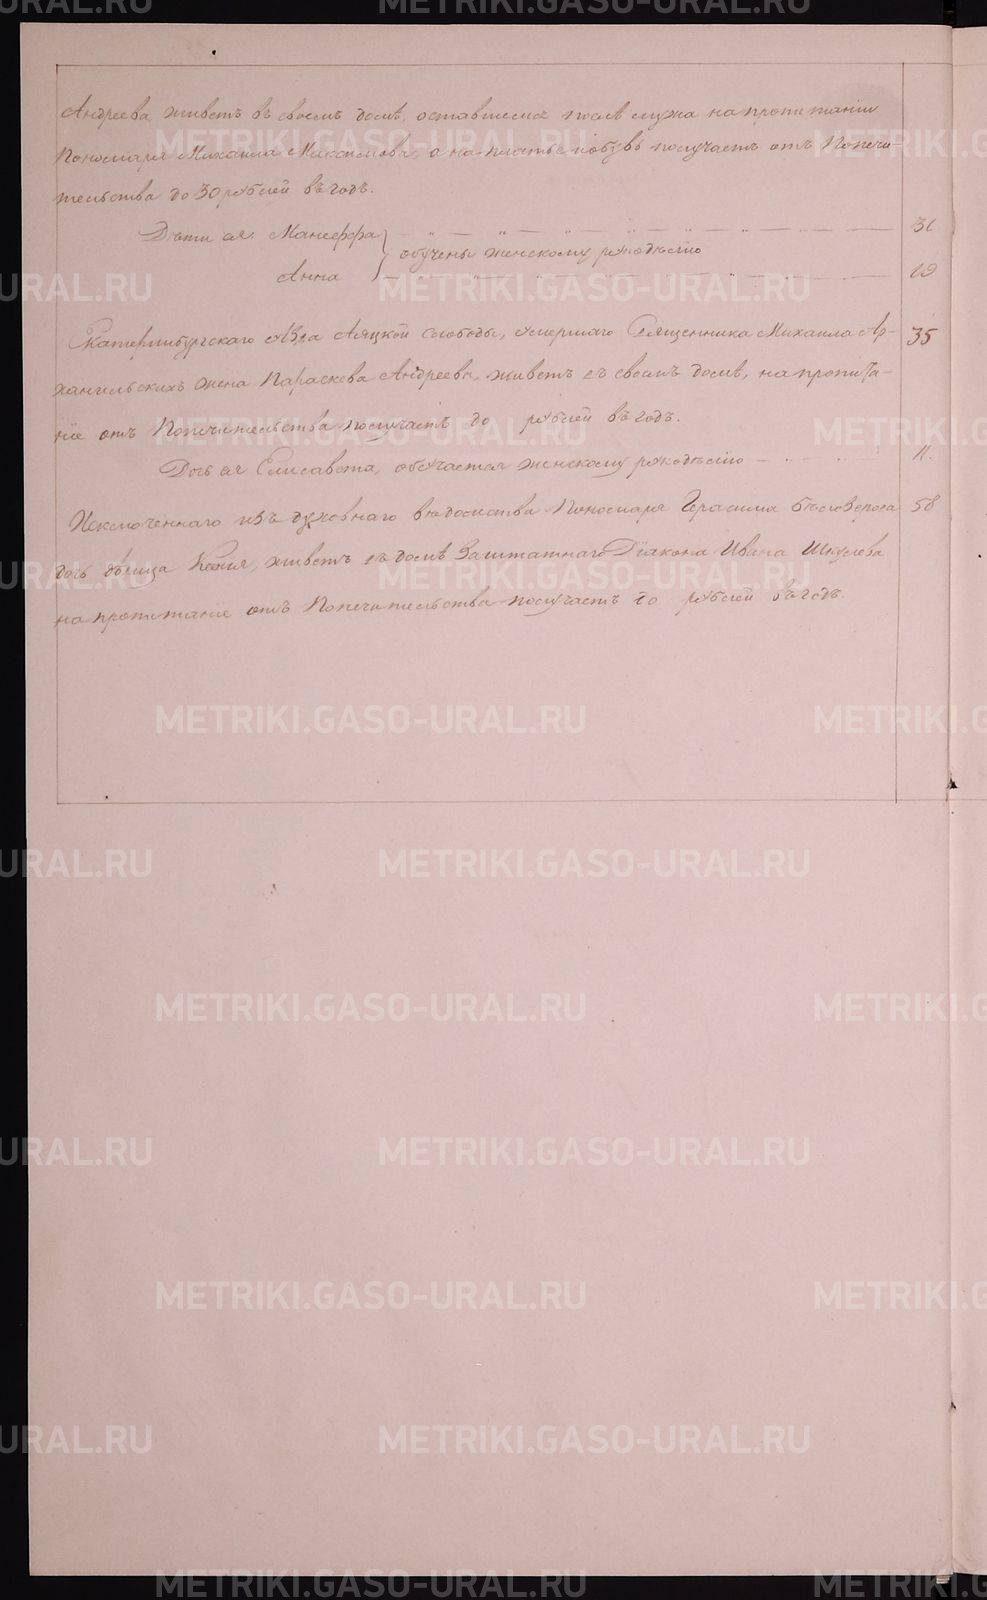 Андреева живетъ въ своемъ домѣ, оставшемся послѣ мужа на пропитаніи
Пономаря Михаила Максимова, а на платье и обувь получаетъ отъ Попечи-
тельства до 30 рублей въ годъ.
Дѣти ея: Манеффа 31
обучены женскому рукодѣлію
Анна 19
Екатеринбургскаго уѣзда Аяцкой слободы, умершаго Священника Михаила Ар- 35
хангельскихъ жена Параскева Андреева, живетъ въ своемъ домѣ, на пропита-
ніе отъ Попечительства получаетъ до рублей въ годъ.
Дочь ея Елисавета, обучается женскому рукодѣлію 11.
Исключеннаго изъ духовнаго вѣдомства Пономаря Герасима 58
дочь дѣвица Ксенія, живетъ въ домѣ Заштатнаго Діакона Ивана Шкулева
на пропитаніе отъ Попечительства получаетъ до рублей въ годъ.
METRIKI.GASO-URAL.RU